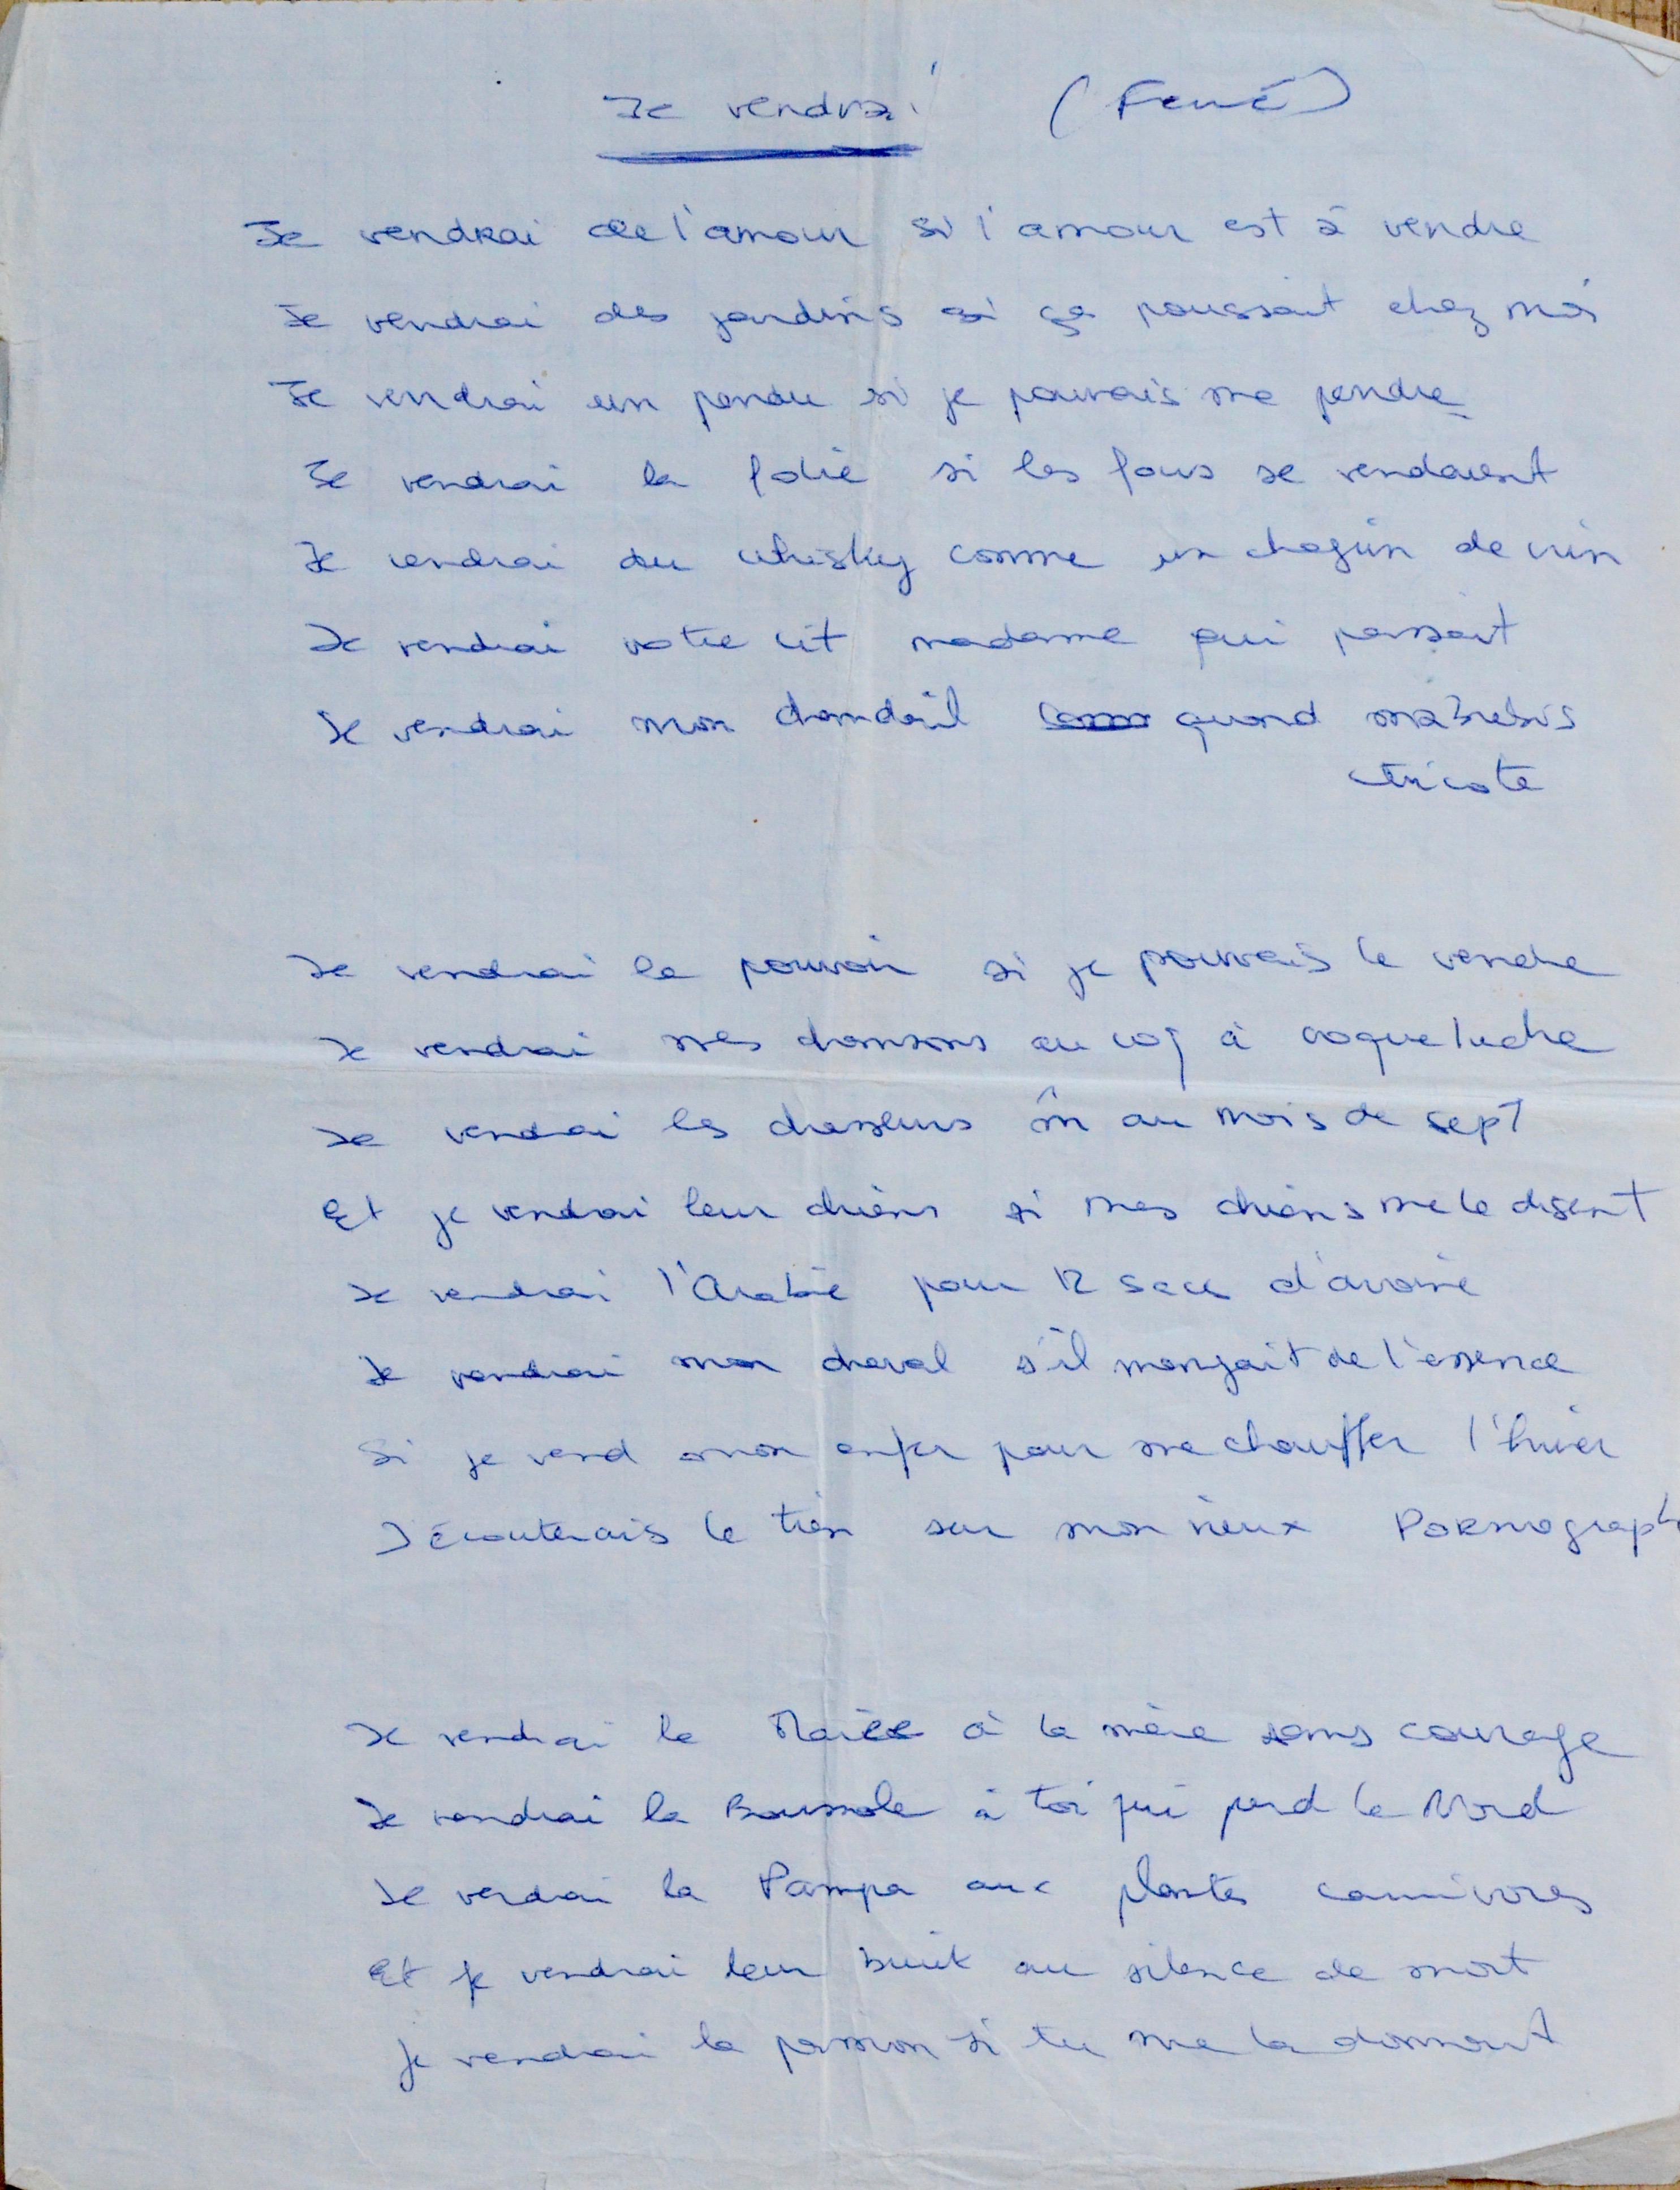 Je vendrai (Ferré)
Je vendrai de l'amour si l'amour est à vendre
Je vendrai des jardins si ça poussait chez moi
Je vendrai un pendu si je pouvais me pendre
Je vendrai la folie si les fous se vendaient
Je vendrai du whisky comme un chagrin de vin
Je vendrai votre lit madame qui passait
Je vendrai mon chandail quand ma brebis
tricote
Je vendrai le pouvoir si je pouvais le vendre
Je vendrai mes chansons au coq à coqueluche
Je vendrai les chasseurs au mois de sept
Et je vendrai leur chiens si mes chiens me le disent
Je vendrai l'Arabie pour 12 sacs d'avoine
Je vendrai mon cheval s'il mangait de l'essence
Si je vend mon enfer pour me chauffer l'hiver
J'écouterais le tien sur mon vieux Pornograph
Je vendrai la à la mère sans courage
Je vendrai la Boussole à toi qui perd le Nord
Je vendrai la Pampa aux plantes carnivores
Et je vendrai leur bruit au silence de mort
je vendrai la passion si tu me la donnait